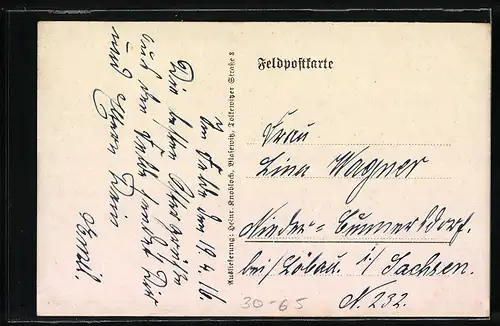 Im Felde den 19.4.16.
Die besten Ostergrüße
aus dem Felde sendet Dir
und Eltern Dein
Emil.
Auslieferung: Heinr. Knobloch, Blasewitz, Tolkewitzer Straße 8
Feldpostkarte
Frau
Lina Wagner
Nieder-Cunnersdorf.
bei/Löbau. i/Sachsen.
N. 232.
30-65